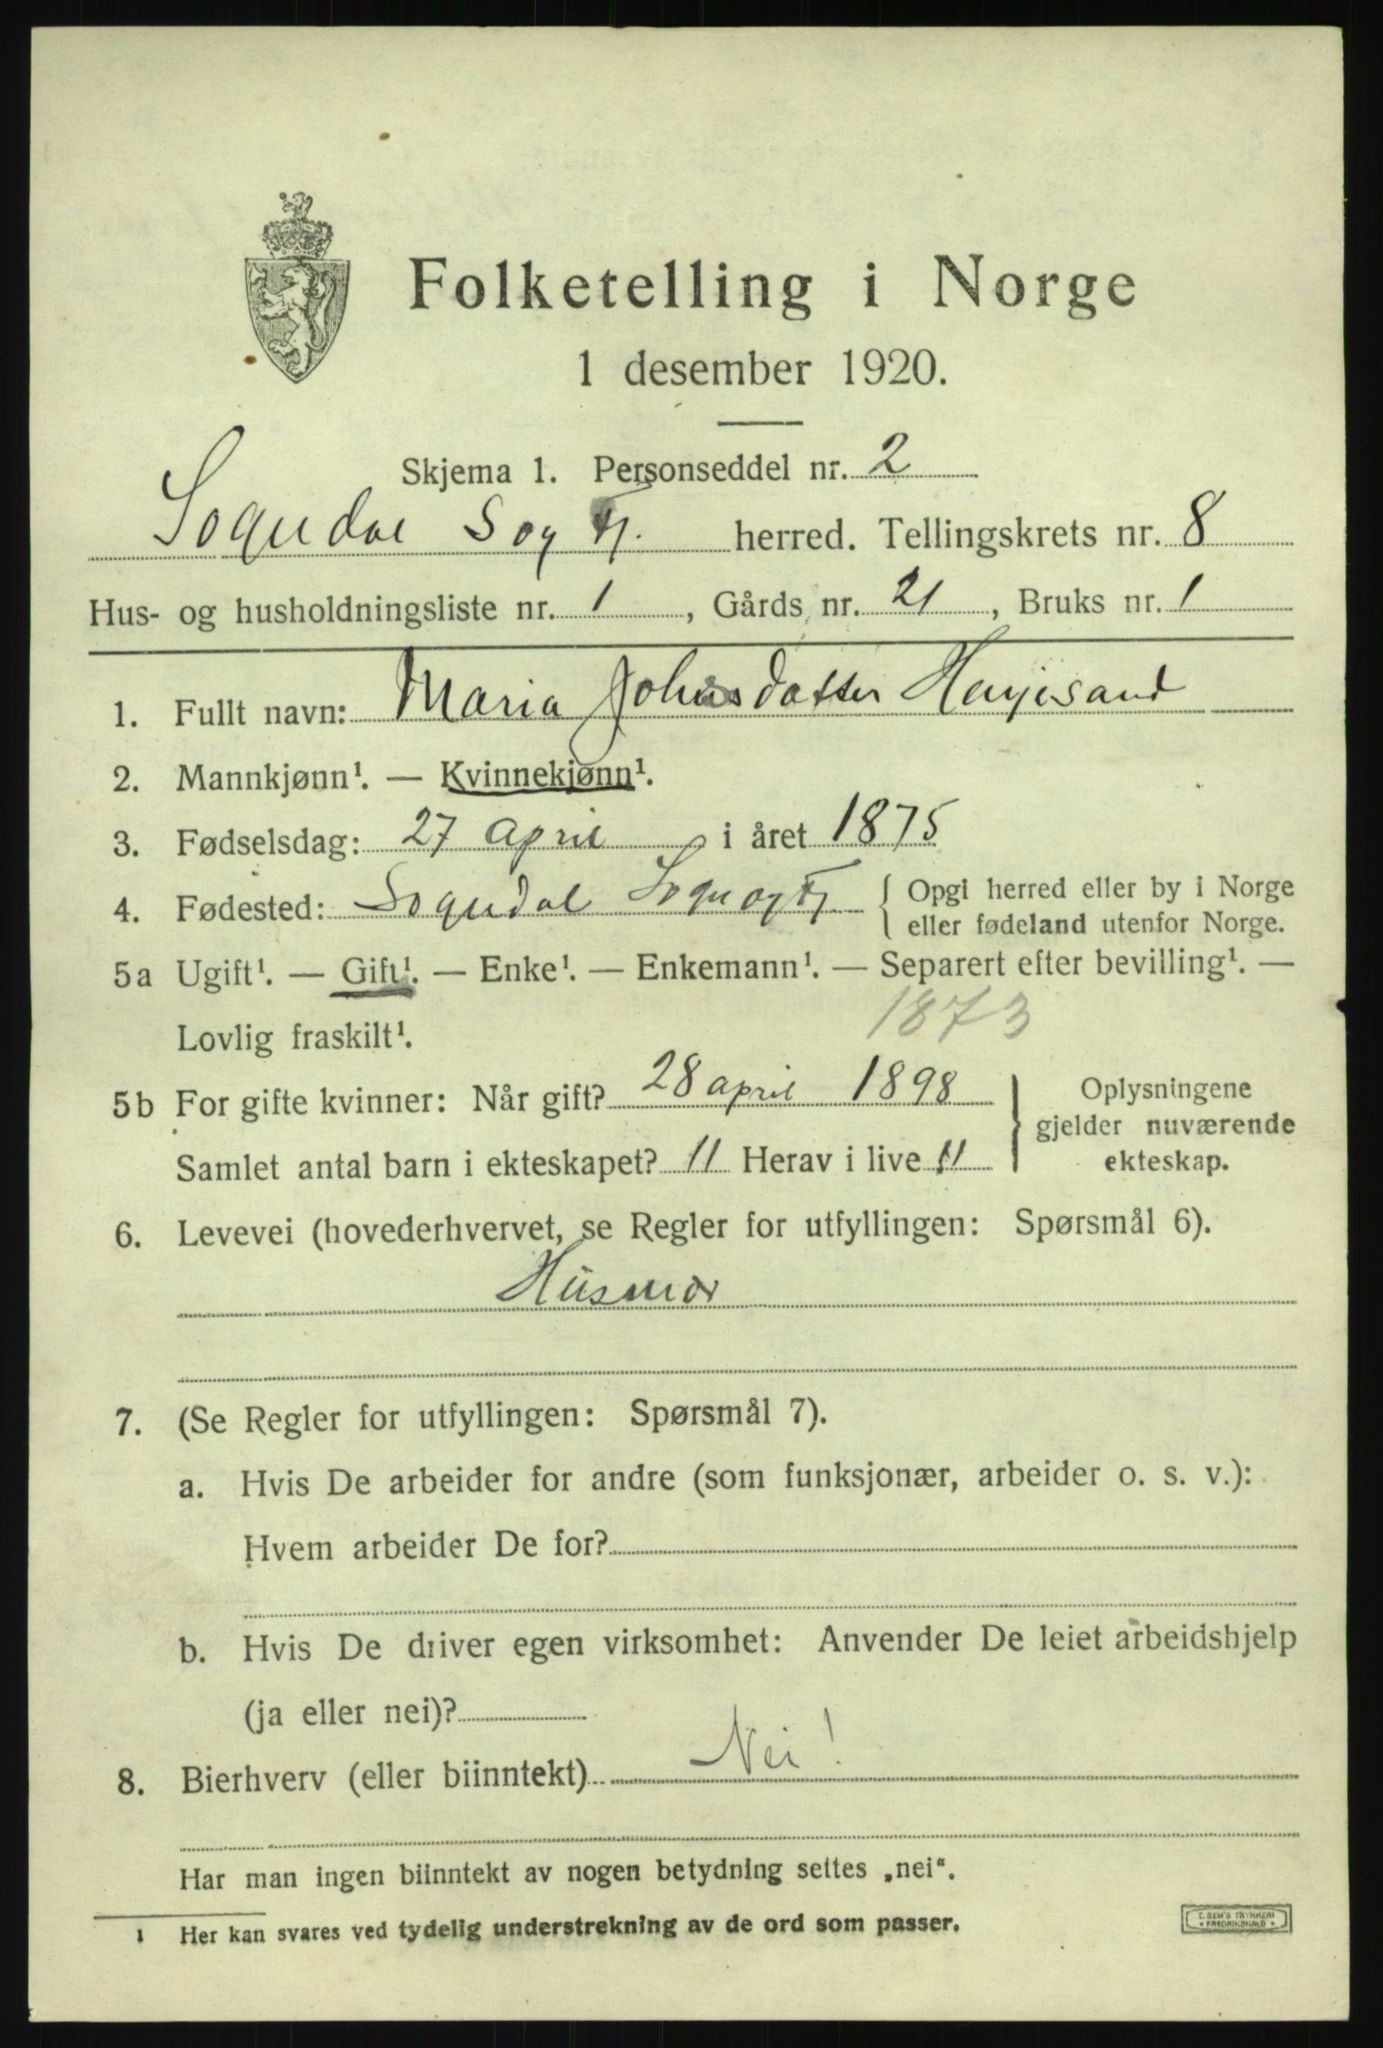 Folketelling i Norge
1 desember 1920.
Skjema 1. Personseddel nr. 2
Sogndal Sogn Fj. herred. Tellingskrets nr. 8
Hus- og husholdningsliste nr. 1, Gårds nr. 21, Bruks nr. 1
1. Fullt navn: Maria Johnsdatter
2. Mannkjønn¹. — Kvinnekjønn¹.
3. Fødselsdag: 27 april i året 1875
4. Fødested: Sogndal Sogn og Fj { Opgi herred eller by i Norge
eller fødeland utenfor Norge.
5a Ugift¹. — Gift¹. — Enke¹. — Enkemann¹. — Separert efter bevilling¹. —
Lovlig fraskilt¹. 1873
5b For gifte kvinner: Når gift? 28 april 1898
Samlet antal barn i ekteskapet? 11 Herav i live 11
} Oplysningene
gjelder nuværende
ekteskap.
6. Levevei (hovederhvervet, se Regler for utfyllingen: Spørsmål 6).
Husmor
7. (Se Regler for utfyllingen: Spørsmål 7).
a. Hvis De arbeider for andre (som funksjonær, arbeider o. s. v.):
Hvem arbeider De for?
b. Hvis De driver egen virksomhet: Anvender De leiet arbeidshjelp
(ja eller nei)?
8. Bierhverv (eller biinntekt) Nei!
Har man ingen biinntekt av nogen betydning settes „nei“.
1 Her kan svares ved tydelig understrekning av de ord som passer.
E. SEM'S TRYKKERI
* FREDRIKSHALD *